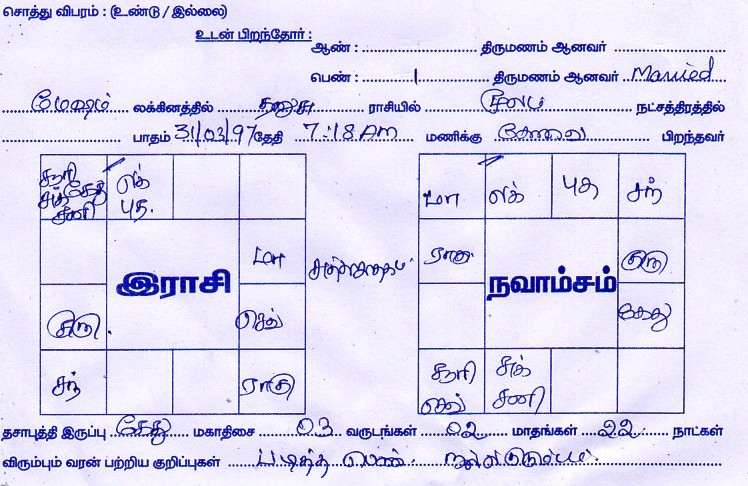 சொத்து விபரம் : (உண்டு / இல்லை)
உடன் பிறந்தோர் :
ஆண் : திருமணம் ஆனவர்
பெண் : 1 திருமணம் ஆனவர் Married
மேஷம் லக்கினத்தில் தனுசு ராசியில் மூலம் நட்சத்திரத்தில்
பாதம் 31/03/97 தேதி 7:18 AM மணிக்கு பிறந்தவர்
சூரி
சுக் கேது
சனி
புத.
மா
இராசி
குரு.
செவ்
சந்
ராகு
மா புத சந்
ராகு
குரு
நவாம்சம்
கேது
சூரி
செவ்
சுக்
சனி
தசாபுத்தி இருப்பு கேது மகாதிசை 03 வருடங்கள் 02 மாதங்கள் 22 நாட்கள்
விரும்பும் வரன் பற்றிய குறிப்புகள் படித்த பெண் நல்ல குடும்பம்.